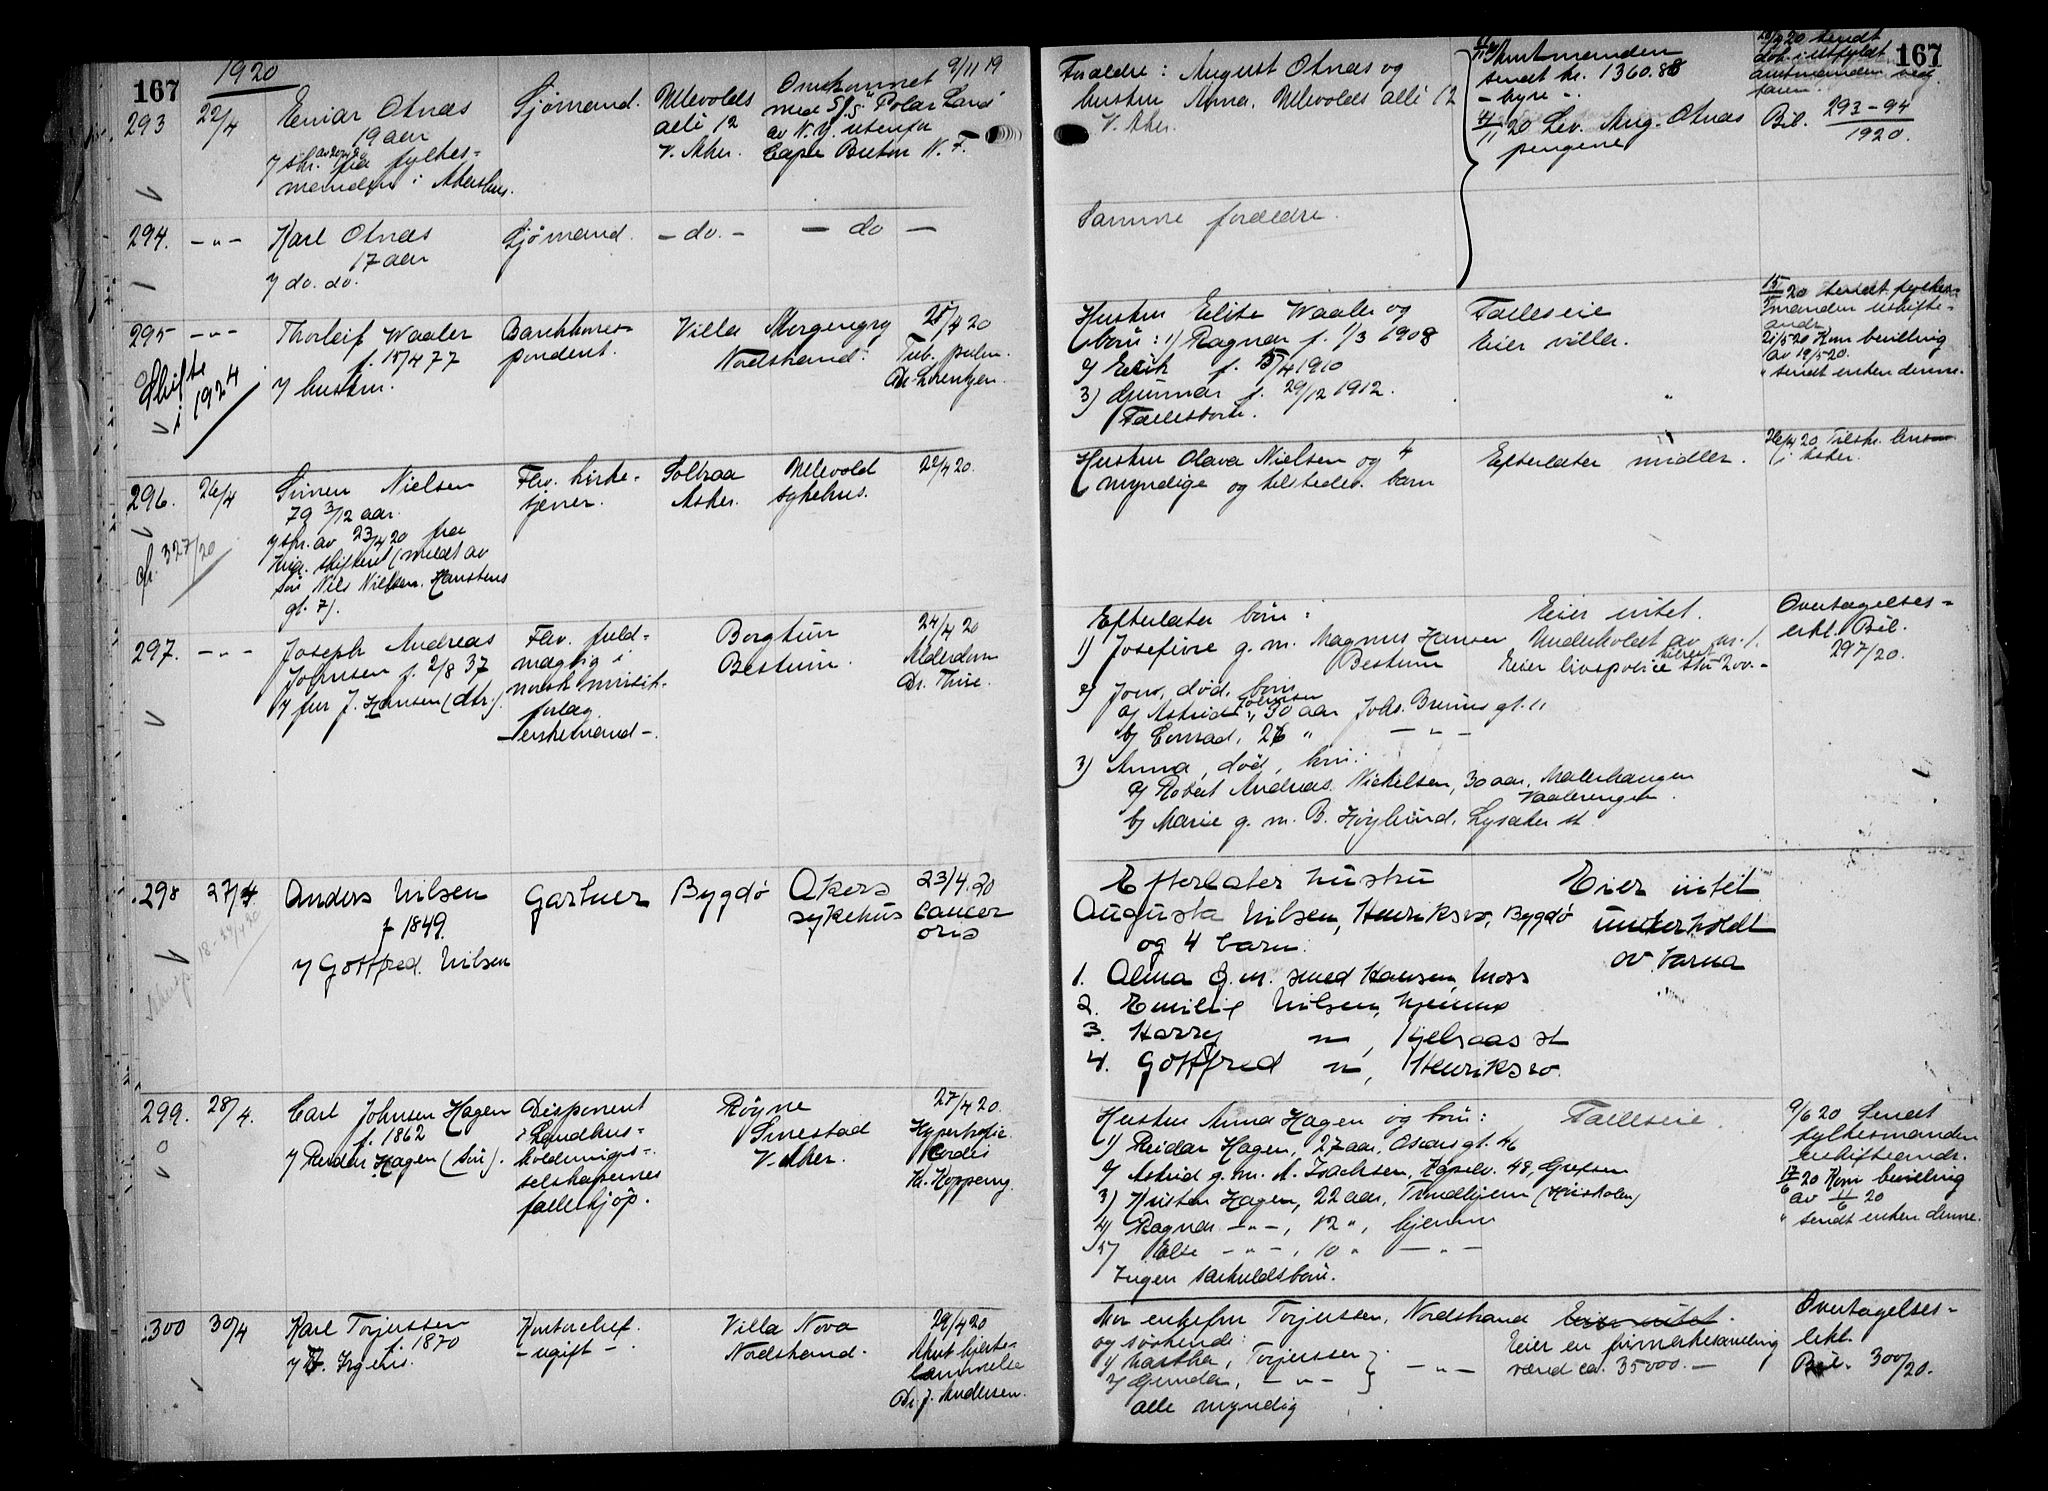 167
1920
293
22/4
Einar Otnæs
19 aar
y skr. fra fylkes-
manden i Akershus.
Sjømand.
Ullevolds
allé 12
V. Aker.
Omkommet 9/11 19
med S/S "Polar Land"
av N.Y. utenfor
Cape Breton N. F.
Forældre: August Otnæs og
hustru Anna, Ullevolds allé 12
V. Aker.
Amtmanden
sendt kr. 1360.88
- hyre -.
4/11 20 Lev. Aug. Otnæs
pengene
Bil. 293-94
1920.
167
294.
- " -
Karl Otnæs
17 aar
y do. do.
Sjømand.
- do. -
- do -
Samme forældre.
295
- " -
Thorleif Waaler
f. 15/4 77
y hustru.
Skifte
i 1924
Bankkorres-
pondent.
Villa Morgengry
Nordstrand.
25/4 20
Tub. pulm.
Dr. Lorentzen.
Hustru Elise Waaler og
børn: 1) Ragnar f. 1/3 1908
2) Erik f. 15/4 1910
3) Gunnar f. 29/12 1912.
Fællesbo.
Fælleseie
Eier villa.
15/5 20 sendt fylkes-
manden uskifte-
andr.
21/5 20 Kom bevilling
av 19/5 20.
" sendt enken denne.
296.
26/4
Simen Nielsen
79 3/12 aar.
y skr. av 23/4 20 fra
Kria. skifteret (meldt av
søn Nils Nielsen. Hanstens
gt. 7).
327/20
Flv. kirke-
tjener.
Solbraa
Asker.
Ullevold
sykehus.
22/4 20.
Hustru Olava Nielsen og 4
myndige og tilstedev. barn
Efterlater midler.
26/4 20 Tilskr. lensm.
i Asker.
297.
- " -
Joseph Andreas
Johnsen f. 2/8 37
y fru J. Hansen (dtr.).
Flv. fuld-
mægtig i
norsk musik-
forlag.
- enkemand -.
Borgtun
Bestum.
24/4 20
Alderdom
Dr. Thue.
Efterlater børn:
1) Josefine g. m. Magnus Hansen
Bestum
2) Jons, død, børn
a) Astrid Johnsen, 30 aar Johs. Bruns gt. 11
b) Conrad, 26 " - " -
3) Anna, død, børn:
a) Robert Andreas Nickelsen, 30 aar, Malerhaugen
Vaalerengen.
b) Marie g. m. B. Høglund, Lysaker st
Eier intet.
Underholdt av nr. 1.
Eier livspolice stor 200.-
Overtagelses-
erkl. Bil.
297/20.
298
27/4
18-24/4 20
Anders Nilsen
f 1849.
y Gottfred Nilsen
Gartner
Bygdø
Akers
sykehus
23/4.20
cancer
oris
Efterlater hustru
Augusta Nilsen, Henriksro, Bygdø
og 4 barn:
1. Alma g. m. smed Hansen, Moss
2. Emilie Nilsen, hjemme
3. Harry " , Kjelsaas st
4. Gottfred " , Henriksro.
Eier intet
underholdt
av barna
299.
28/4.
Carl Johnsen Hagen
f. 1862
y Reidar Hagen (søn).
Disponent
i Landhus-
holdnings-
selskapernes
fælleskjøp.
Røyne
Smestad
V. Aker.
27/4 20.
Hypertrofie
Cordis
Kr. Koppang.
Hustru Anna Hagen og børn:
1) Reidar Hagen, 27 aar, Oscars gt. 46
2) Astrid g. m. A. Isachsen, 48, Grefsen
3) Kristen Hagen, 22 aar, Trondhjem (Høiskolen)
4) Ragnar - " -, 12 ", hjemme
5) Else - " -, 10 " - " -
Ingen særkuldsbørn.
Fælleseie.
9/6 20 Sendt
fylkesmanden
uskifteandr.
17/6 20 Kom bevilling
av 11/6 20
" sendt enken denne.
300
30/4
Karl Torjussen
f. 1870
Kontorchef.
- ugift -.
Villa Nova
Nordstrand.
29/4 20
Akut hjerte-
lammelse
Dr. J. Andersen.
Mor enkefru Torjussen, Nordstrand
og søskende:
1) Martha, Torjussen
2) Gunda, - " -
- " -
alle myndig
Eier intet.
Eier en frimerkesamling
værd ca. 35000.-
Overtagelses-
erkl.
Bil. 300/20.